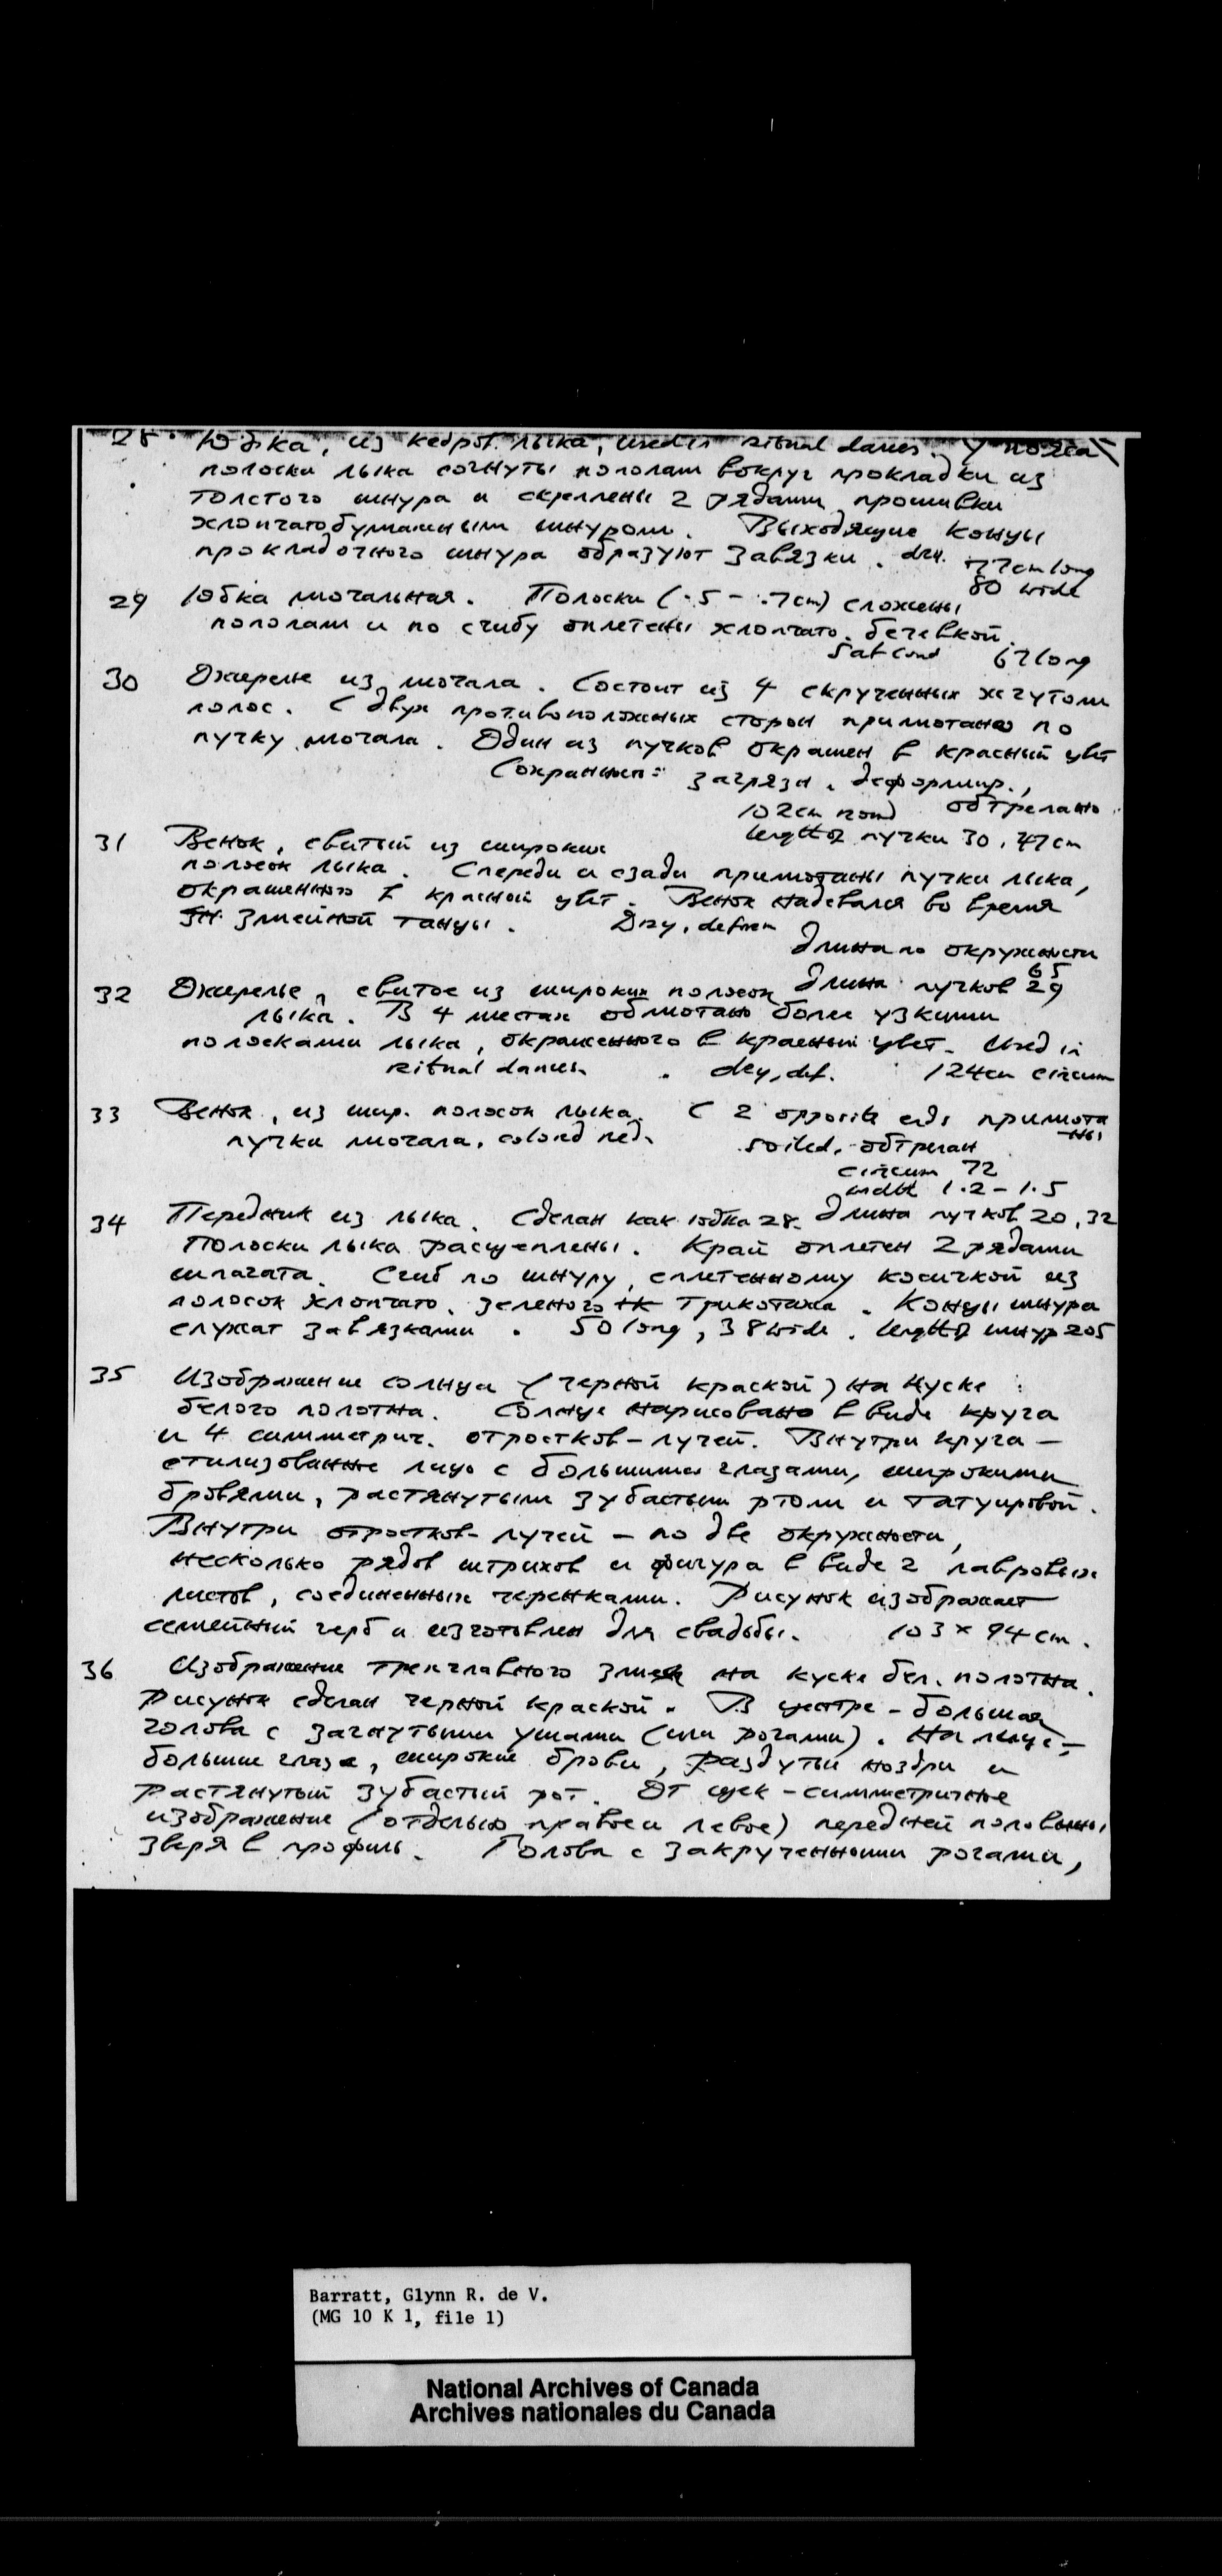 28. Юбка, из кедров. лыка, used in ritual dances. У пояса
полоски лыка согнуты пополам вокруг прокладки из
толстого шнура и скреплены 2 рядами прошивки
хлопчатобумажным шнуром. Выходящие концы
прокладочного шнура образуют завязки. dry. 77cm long
80 wide
29 Юбка мочальная. Полоски (.5 - .7cm) сложены
пополам и по сгибу оплетены хлопчато. бечевкой.
Sat cond 67 long
30 Ожерелье из мочала. Состоит из 4 скрученных жгутом
полос. С двух противоположных сторон примотано по
пучку мочала. Один из пучков окрашен в красный цвет
Сохранност: загрязн. деформир.,
102cm round обтрепано.
length of пучки 30, 47cm
31 Венок, свитый из широких
полосок лыка. Спереди и сзади примотаны пучки лыка,
окрашенного в красный цвет. Венок надевался во время
змеиной танцы. Dry, deform
Длина по окружности
65
Длина пучков 29
32 Ожерелье, свитое из широких полосок
лыка. В 4 местах обмотано более узкими
полосками лыка, окрашенного в красный цвет. Used in
ritual dances. dry, def. 124cm circum
33 Венок, из шир. полосок лыка. С 2 opposite ends примота
ны
пучки мочала, colored red. soiled, обтрепан
circum 72
width 1.2 - 1.5
Длина пучков 20, 32
34 Передник из лыка. Сделан как юбка 28.
Полоски лыка расщеплены. Край оплетен 2 рядами
шпагата. Сгиб по шнуру, сплетенному косичкой из
полосок хлопчато. зеленого тк трикотажа. Концы шнура
служат завязками. 50 long, 38 wide. length of шнур 205
35 Изображение солнца (черной краской) на куске
белого полотна. Солнце нарисовано в виде круга
и 4 симметрич. отростков-лучей. Внутри круга —
стилизованные лицо с большими глазами, широкими
бровями, растянутым зубастым ртом и татуировой.
Внутри отростков-лучей - по две окружности,
несколько рядов штрихов и фигура в виде 2 лавровых
листов, соединенных черенками. Рисунок изображает
семейный герб и изготовлен для свадьбы. 103 x 94 cm.
36 Изображение трехглавного змея на куске бел. полотна.
Рисунок сделан черной краской. В центре - большая
голова с загнутыми ушами (или рогами). На лице -
большие глаза, широкие брови, раздутый ноздри и
растянутый зубастый рот. От щек - симметричные
изображение (отдельно правое и левое) передней половины
зверя в профиль. Голова с закрученными рогами,
Barratt, Glynn R. de V.
(MG 10 K 1, file 1)
National Archives of Canada
Archives nationales du Canada